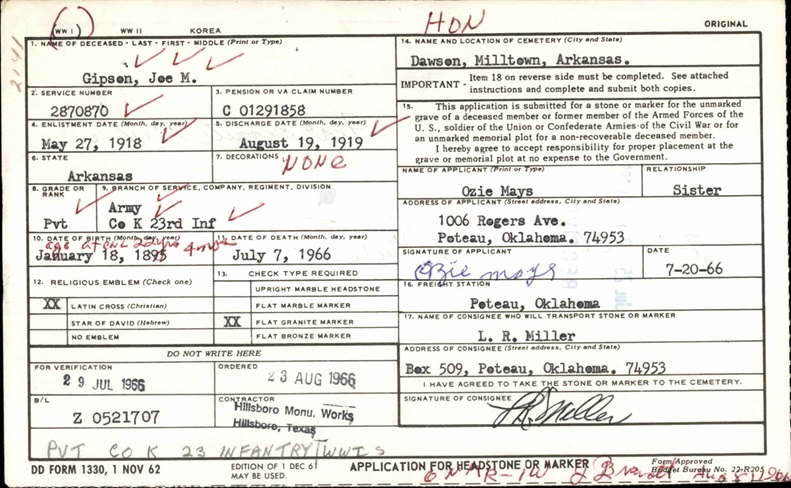 (WW I) WW II KOREA
HON
ORIGINAL
2141
1. NAME OF DECEASED - LAST - FIRST - MIDDLE (Print or Type)
Gipson, Joe M.
2. SERVICE NUMBER
2870870
3. PENSION OR VA CLAIM NUMBER
C 01291858
4. ENLISTMENT DATE (Month, day, year)
May 27, 1918
5. DISCHARGE DATE (Month, day, year)
August 19, 1919
6. STATE
Arkansas
7. DECORATIONS
NONE
8. GRADE OR RANK
Pvt
9. BRANCH OF SERVICE, COMPANY, REGIMENT, DIVISION
Army
Co K 23rd Inf
10. DATE OF BIRTH (Month, day, year)
age at enl 22yrs 4mos
January 18, 1895
11. DATE OF DEATH (Month, day, year)
July 7, 1966
12. RELIGIOUS EMBLEM (Check one)
XX LATIN CROSS (Christian)
STAR OF DAVID (Hebrew)
NO EMBLEM
13. CHECK TYPE REQUIRED
UPRIGHT MARBLE HEADSTONE
FLAT MARBLE MARKER
XX FLAT GRANITE MARKER
FLAT BRONZE MARKER
DO NOT WRITE HERE
FOR VERIFICATION
29 JUL 1966
ORDERED
23 AUG 1966
B/L
Z 0521707
CONTRACTOR
Hillsboro Monu. Works
Hillsboro, Texas
14. NAME AND LOCATION OF CEMETERY (City and State)
Dawson, Milltown, Arkansas.
IMPORTANT - Item 18 on reverse side must be completed. See attached
instructions and complete and submit both copies.
15. This application is submitted for a stone or marker for the unmarked
grave of a deceased member or former member of the Armed Forces of the
U. S., soldier of the Union or Confederate Armies of the Civil War or for
an unmarked memorial plot for a non-recoverable deceased member.
I hereby agree to accept responsibility for proper placement at the
grave or memorial plot at no expense to the Government.
NAME OF APPLICANT (Print or Type)
Ozie Mays
RELATIONSHIP
Sister
ADDRESS OF APPLICANT (Street address, City and State)
1006 Rogers Ave.
Poteau, Oklahoma. 74953
SIGNATURE OF APPLICANT
Ozie Mays
DATE
7-20-66
16. FREIGHT STATION
Poteau, Oklahoma
17. NAME OF CONSIGNEE WHO WILL TRANSPORT STONE OR MARKER
L. R. Miller
ADDRESS OF CONSIGNEE (Street address, City and State)
Box 509, Poteau, Oklahoma. 74953
I HAVE AGREED TO TAKE THE STONE OR MARKER TO THE CEMETERY.
SIGNATURE OF CONSIGNEE
L R Miller
PVT CO K 23 INFANTRY WWI S
DD FORM 1330, 1 NOV 62
EDITION OF 1 DEC 61
MAY BE USED.
APPLICATION FOR HEADSTONE OR MARKER
Form Approved
Budget Bureau No. 22-R205